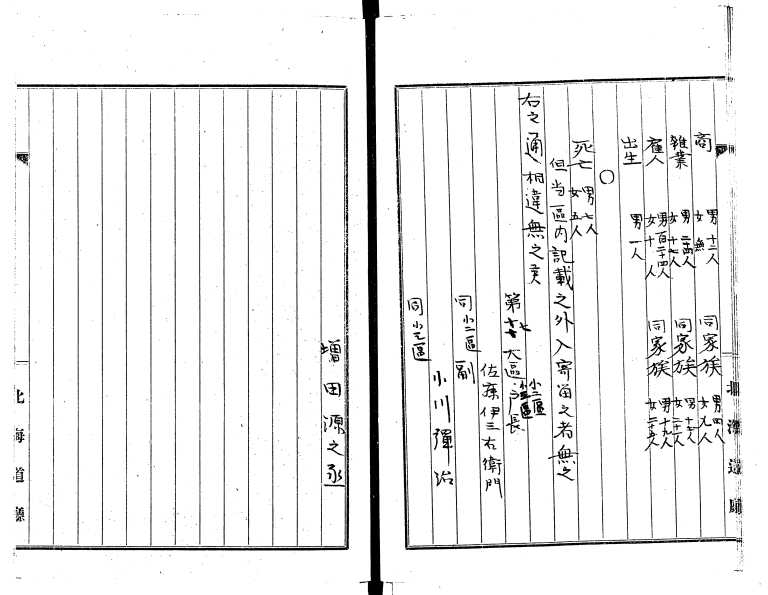 商 男十二人 女無 同家族 男四人 女九人
雑業 男二四人 女十七人 同家族 男十七人 女二十一人
雇人 男百二十四人 女十一人 同家族 男十九人 女二十五人
出生 男一人
○
死亡 男七人 女五人
但当区内記載之外入寄留之者無之
右之通相違無之候
第十七大區 小二區 戸長
佐藤伊三右衛門
同小二區 副
小川彌治
同小三區
増田源之丞
北海道廳
北海道廳